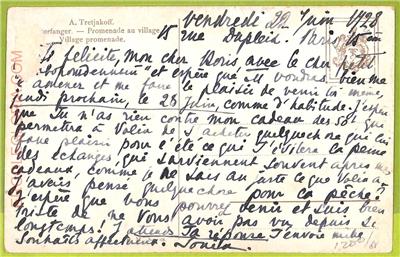 A. Tretjakoff.
Promenade au village
Village promenade.
Vendredi 22 Juin 1928
15 rue Dupleix. Paris
Te felicite, mon cher Boris avec le cher petit
et espère que M voudras bien me
amener et me faire le plaisir de venir
jeudi prochain, le 28 Juin, comme d'habitude. J'espère
que tu n'as rien contre mon cadeau des 50f que
permettra à Volia de s'acheter quelquechose qui lui
fasse plaisir pour l'été ce qui t'évitera la peine
des échanges, qui surviennent souvent après mes
cadeaux, comme je ne sais au juste ce que Volia a
J'avais pensé quelquechose pour la pêche!
J'espère que vous pourrez venir et suis bien
triste de ne vous avoir pas vu depuis si
longtemps! J'attends ta réponse. J'envoie mille
souhaits affectueux. Sonia.